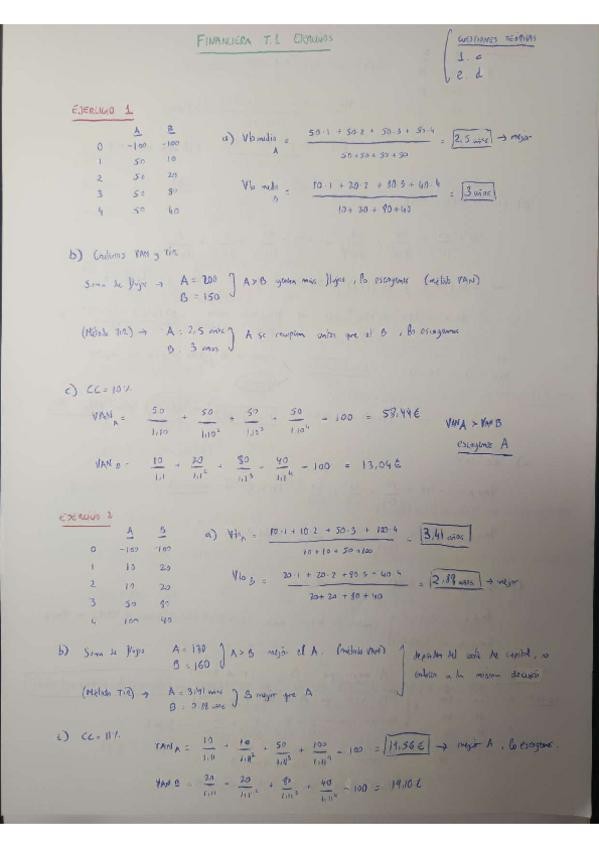 FINANCIERA T.1 EJERCICIOS
CUESTIONES TEÓRICAS
1. c
2. d
EJERCICIO 1
A B
0 -100 -100
1 50 10
2 50 20
3 50 80
4 50 40
a) Vto medio A = 50·1 + 50·2 + 50·3 + 50·4 / 50+50+50+50 = 2,5 años → mejor
Vto medio B = 10·1 + 20·2 + 80·3 + 40·4 / 10+20+80+40 = 3 años
b) VAN y TIR
Suma de flujos → A = 200
B = 150
A>B generan más flujos, lo escogemos (método VAN)
(Método TIR) → A: 2,5 años
B: 3 años
A se recupera antes que el B, lo escogemos
c) CC = 10%
VAN A = 50/1,10 + 50/1,10² + 50/1,10³ + 50/1,10⁴ - 100 = 58,49€
VAN B = 10/1,1 + 20/1,1² + 80/1,1³ + 40/1,1⁴ - 100 = 13,04€
VAN A > VAN B
escogemos A
EJERCICIO 2
A B
0 -100 -100
1 10 20
2 10 20
3 50 80
4 100 40
a) Vto A = 10·1 + 10·2 + 50·3 + 100·4 / 10+10+50+100 = 3,41 años
Vto B = 20·1 + 20·2 + 80·3 + 40·4 / 20+20+80+40 = 2,88 años → mejor
b) Suma de flujos A = 170
B = 160
A>B mejor el A. (método VAN)
(Método TIR) → A = 3,41 años
B = 2,88 años
B mejor que A
del coste de capital, no a la misma decisión
c) CC = 11%
VAN A = 10/1,11 + 10/1,11² + 50/1,11³ + 100/1,11⁴ - 100 = 19,56€ → mejor A, lo escogemos.
VAN B = 20/1,11 + 20/1,11² + 80/1,11³ + 40/1,11⁴ - 100 = 19,10€